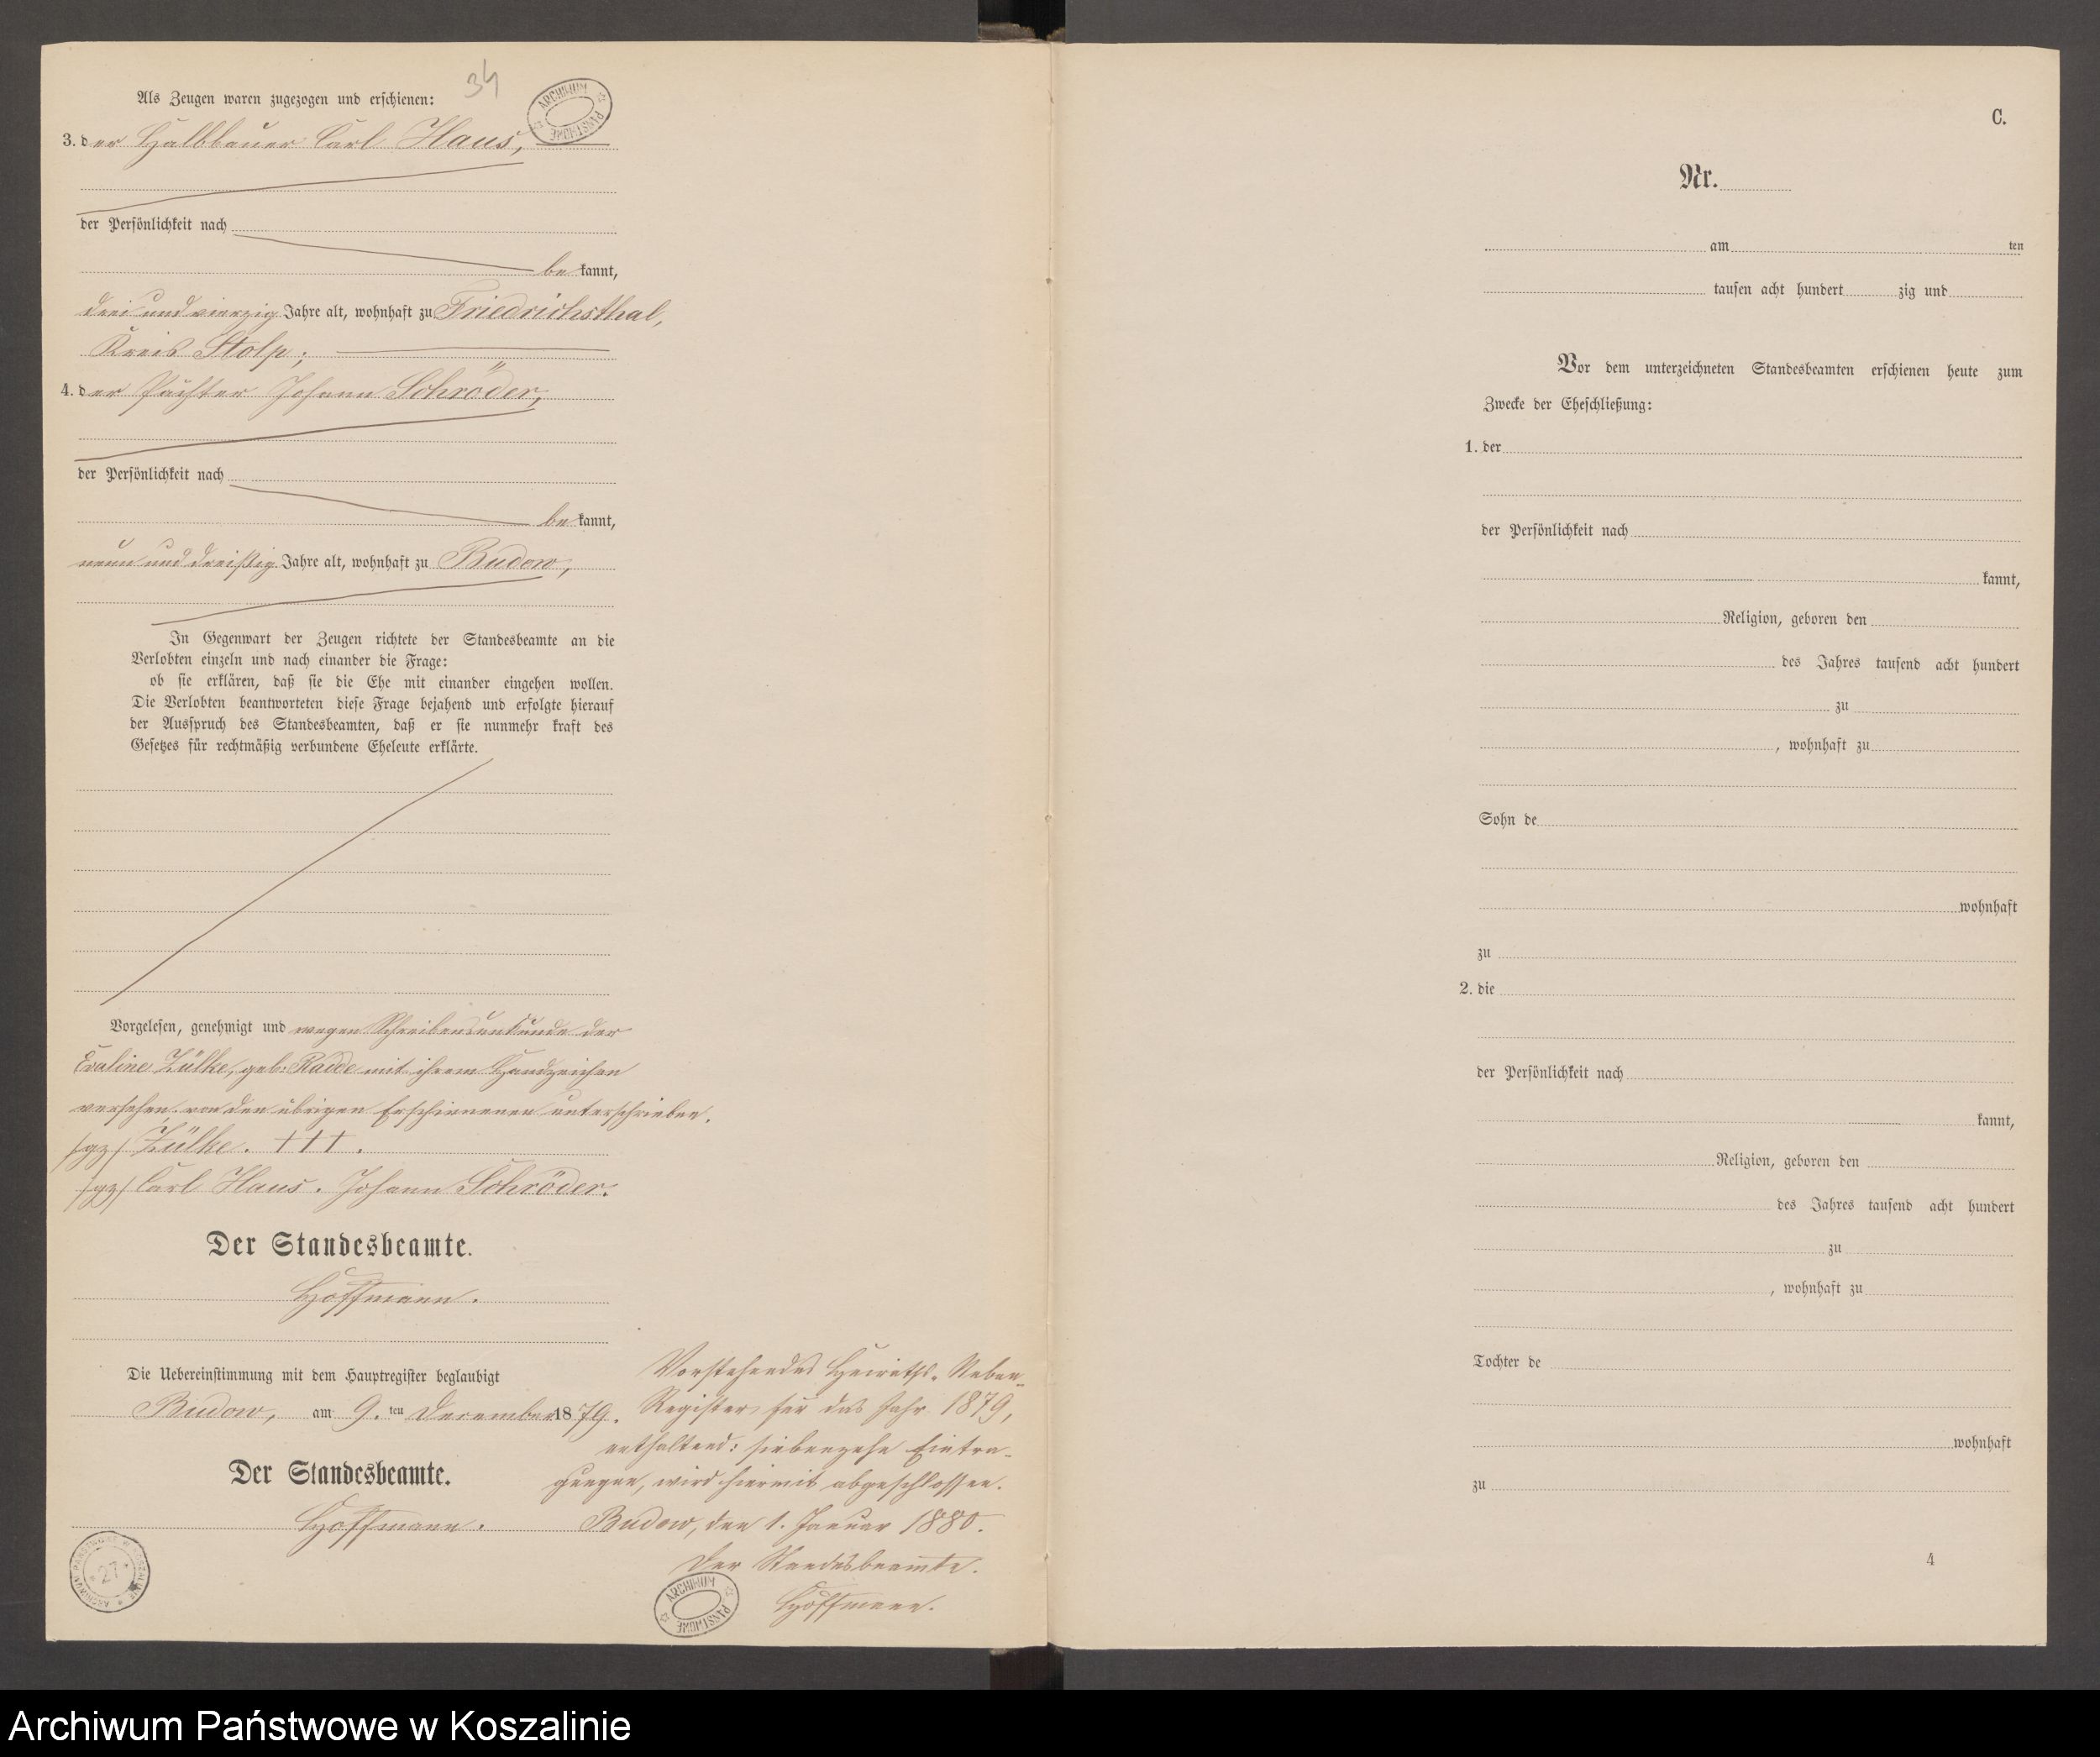 34
Als Zeugen waren zugezogen und erschienen:
ARCHIWUM PAŃSTWOWE
3. der Halbbauer Carl Haus,
der Persönlichkeit nach
bekannt,
drei und vierzig Jahre alt, wohnhaft zu Friedrichsthal,
Kreis Stolp;
4. der Pächter Johann Schröder,
der Persönlichkeit nach
bekannt,
neun und dreißig Jahre alt, wohnhaft zu Budow,
In Gegenwart der Zeugen richtete der Standesbeamte an die
Verlobten einzeln und nach einander die Frage:
ob sie erklären, daß sie die Ehe mit einander eingehen wollen.
Die Verlobten beantworteten diese Frage bejahend und erfolgte hierauf
der Ausspruch des Standesbeamten, daß er sie nunmehr kraft des
Gesetzes für rechtmäßig verbundene Eheleute erklärte.
Vorgelesen, genehmigt und wegen Schreibensunkunde der
Evaline Zülke, geb: Radde mit ihrem Handzeichen
versehen, von den übrigen Erschienenen unterschrieben.
/gz/ Zülke. +++.
/gz/ Carl Haus. Johann Schröder.
Der Standesbeamte.
Hoffmann.
Die Uebereinstimmung mit dem Hauptregister beglaubigt
Budow, am 9. ten December 1879.
Der Standesbeamte.
Hoffmann.
ARCHIWUM PAŃSTWOWE W KOSZALINIE
27
Vorstehendes Heiraths-Neben-
Register für das Jahr 1879,
enthaltend: siebenzehn Eintra-
gungen, wird hiermit abgeschlossen.
Budow, den 1. Januar 1880.
Der Standesbeamte.
Hoffmann.
ARCHIWUM PAŃSTWOWE
C.
Nr.
am ten
tausen acht hundert zig und
Vor dem unterzeichneten Standesbeamten erschienen heute zum
Zwecke der Eheschließung:
1. der
der Persönlichkeit nach
kannt,
Religion, geboren den
des Jahres tausend acht hundert
zu
, wohnhaft zu
Sohn de
wohnhaft
zu
2. die
der Persönlichkeit nach
kannt,
Religion, geboren den
des Jahres tausend acht hundert
zu
, wohnhaft zu
Tochter de
wohnhaft
zu
4
Archiwum Państwowe w Koszalinie